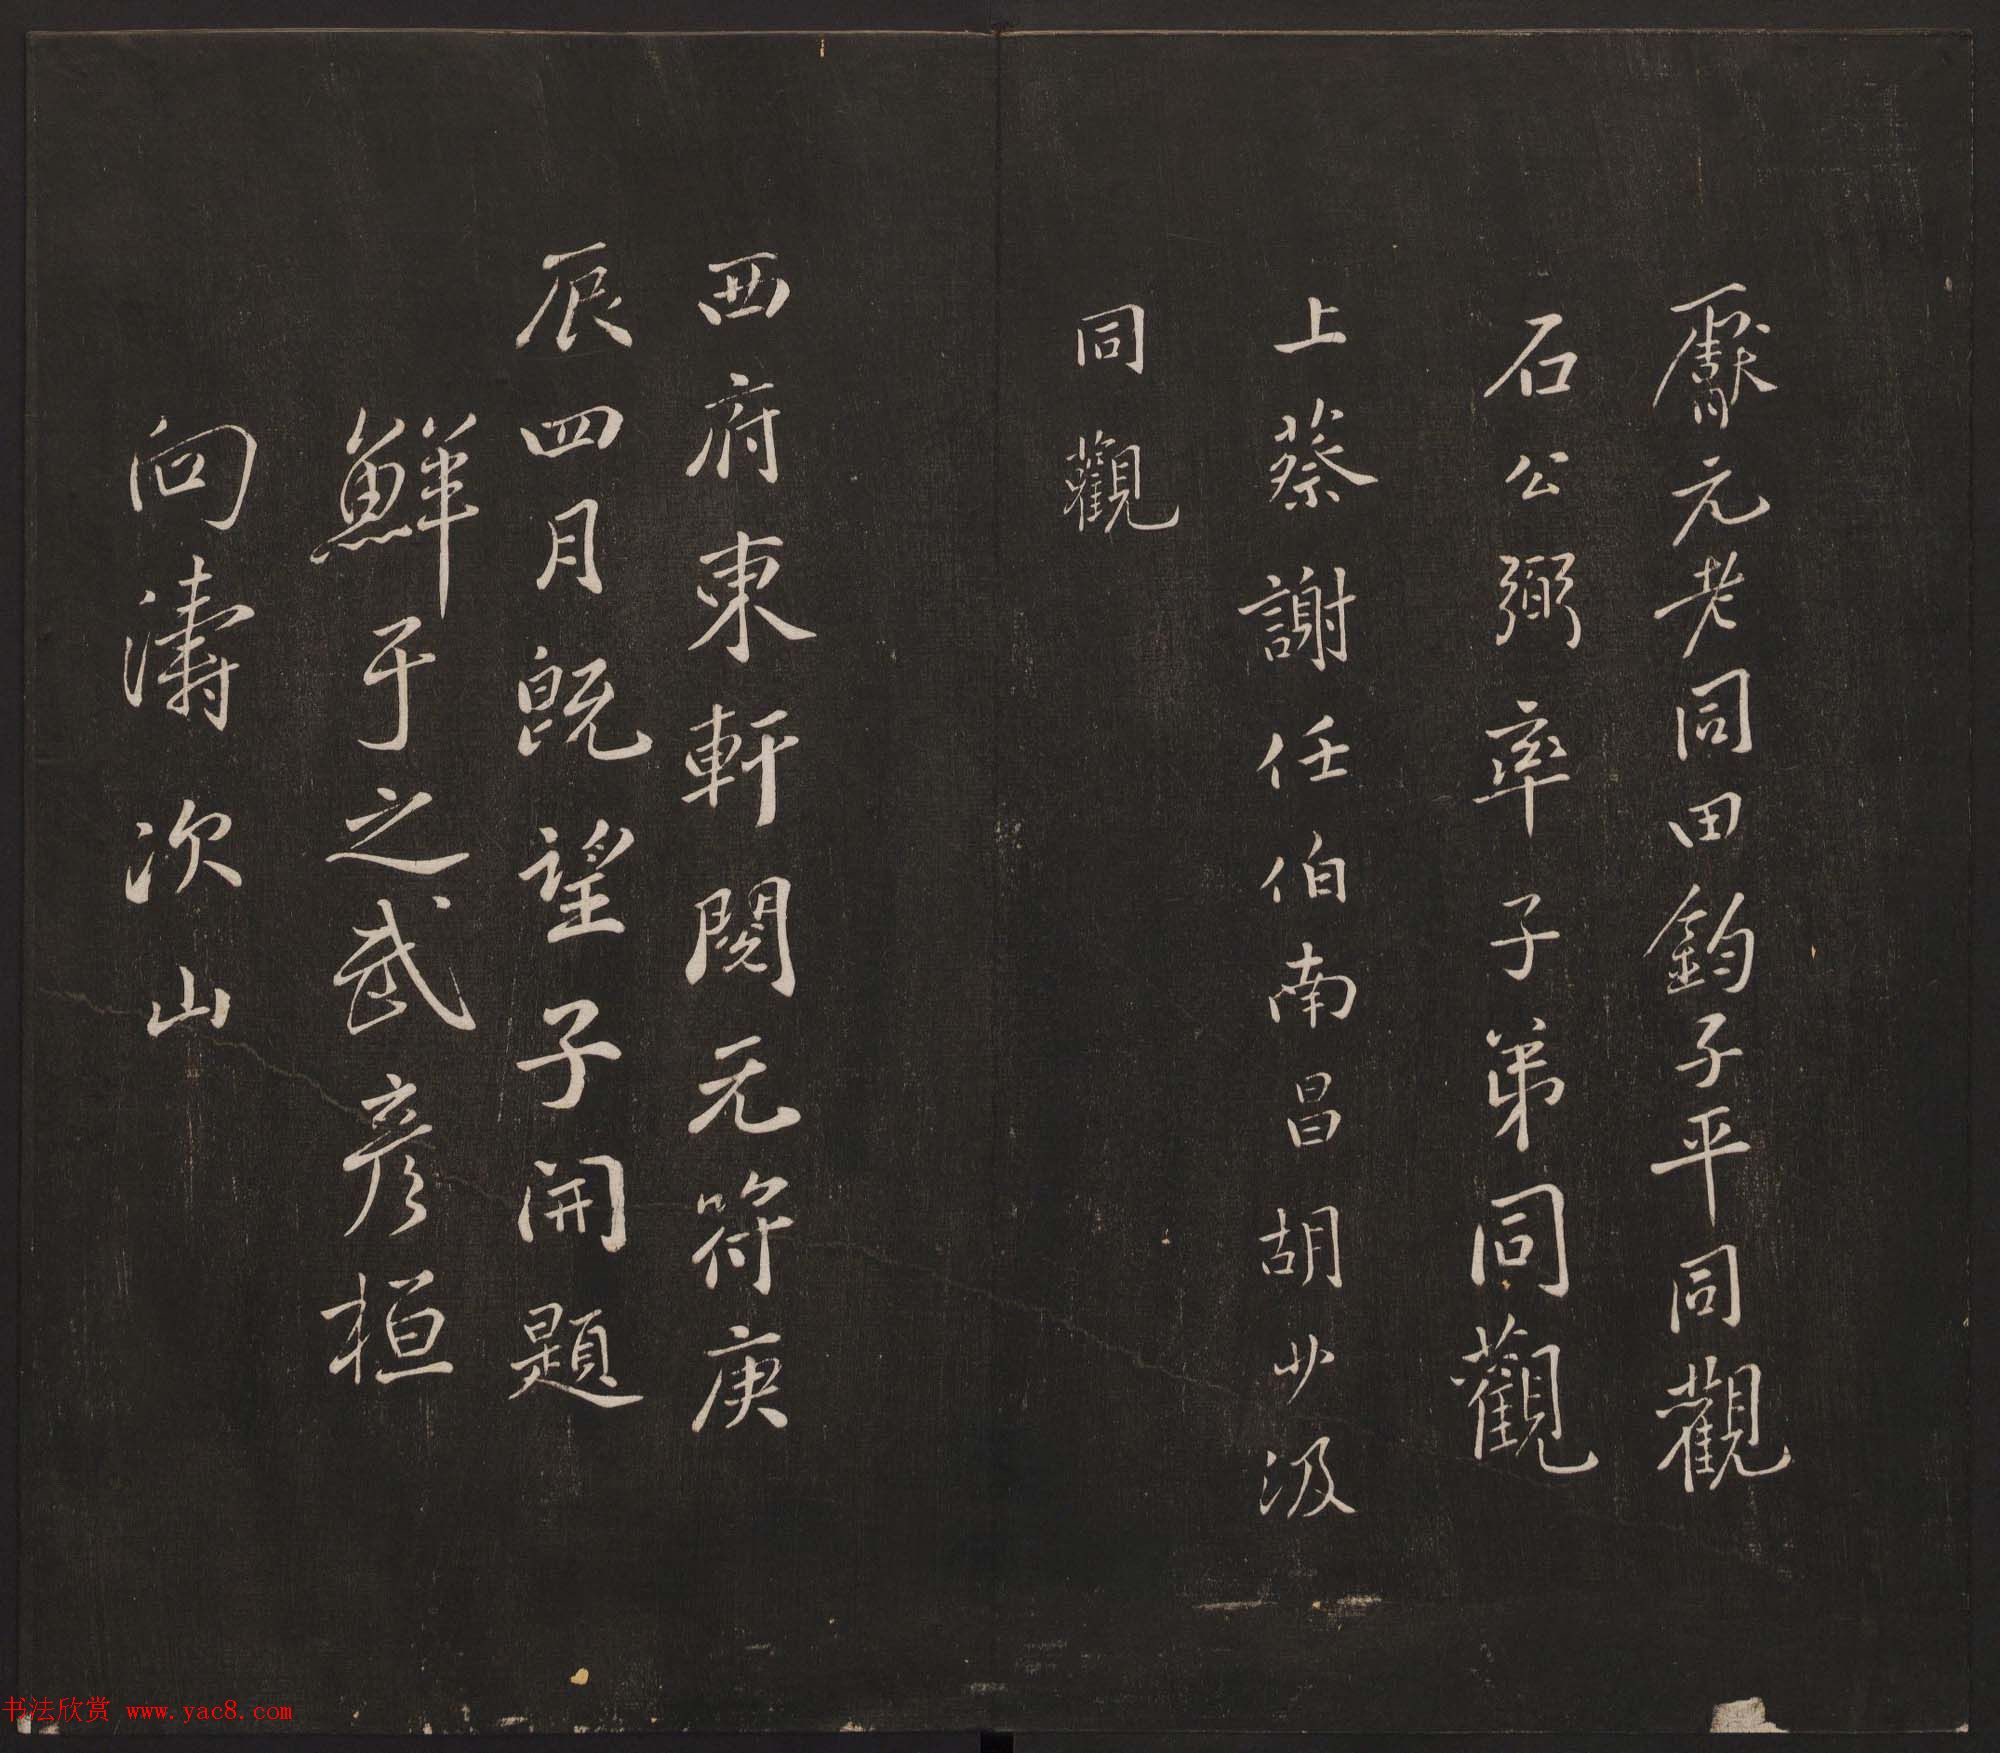 元老同田鈞子平同觀
石公弼率子弟同觀
上蔡謝任伯南昌胡少汲
同觀
西府東軒閱元符庚
辰四月既望子開題
鮮于之武彥桓
向濤次山
书法欣赏 www.yac8.com